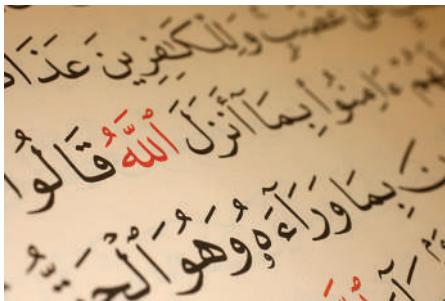 وَلِلْكَٰفِرِينَ عَذَا
ءَامِنُوا۟ بِمَآ أَنزَلَ ٱللَّهُ قَالُوا۟
بِمَا وَرَآءَهُۥ وَهُوَ ٱلْحَقُّ